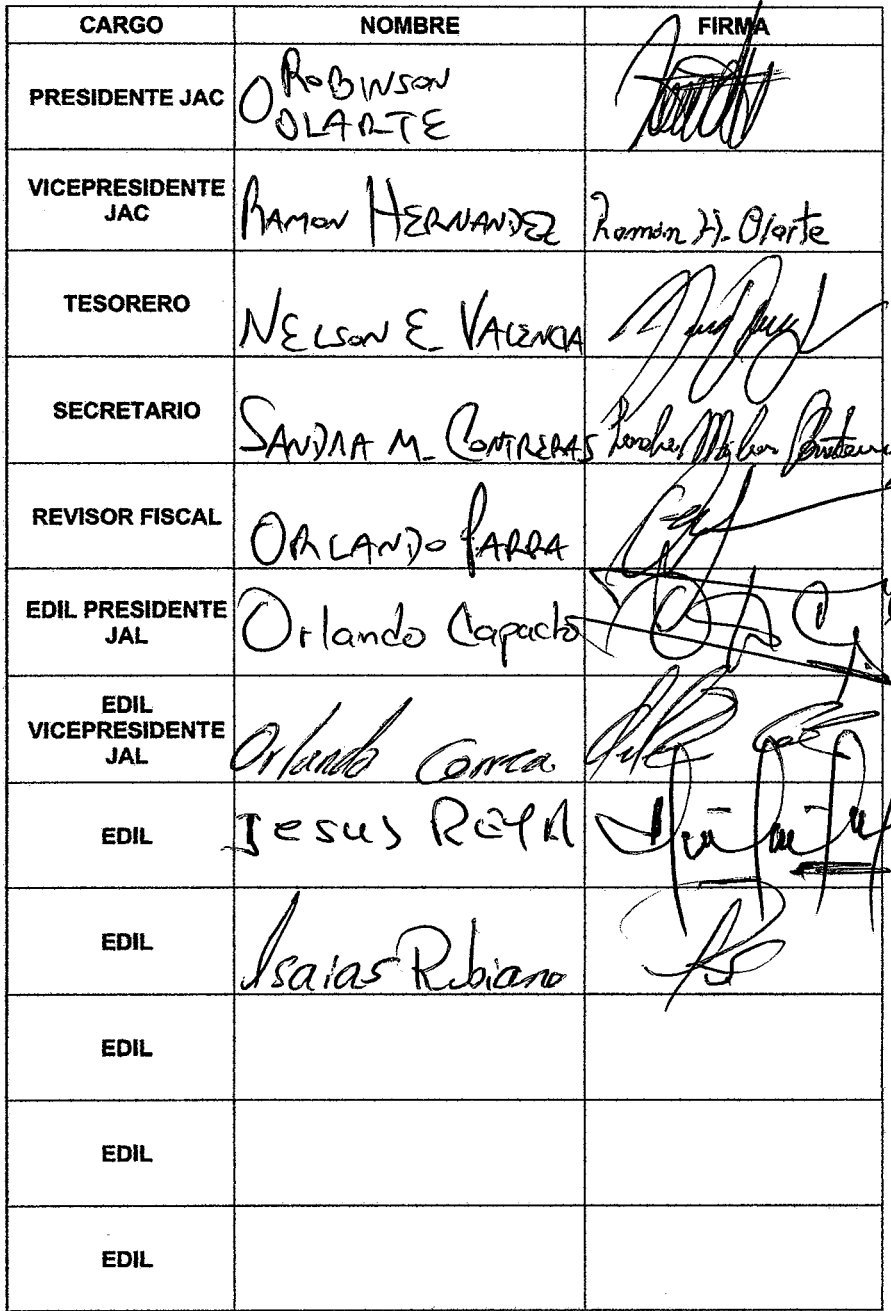 CARGO NOMBRE FIRMA
PRESIDENTE JAC ROBINSON
OLARTE
VICEPRESIDENTE
JAC RAMON HERNANDEZ Ramón H. Olarte
TESORERO NELSON E. VALENCIA
SECRETARIO SANDRA M. CONTRERAS
REVISOR FISCAL ORLANDO PARRA
EDIL PRESIDENTE
JAL Orlando Capacho
EDIL
VICEPRESIDENTE
JAL Orlando Correa
EDIL JESUS REYA
EDIL Isaias Rubiano
EDIL
EDIL
EDIL